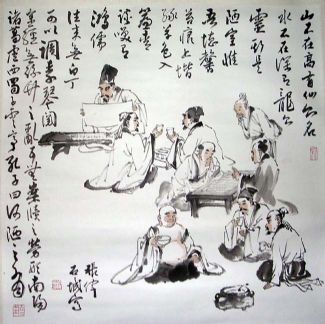 山不在高有仙则名
水不在深有龙则
靈斯是
陋室惟
吾德馨
苔痕上堦
綠草色入
簾青
談笑有
鸿儒
往来無白丁
可以調素琴閲
金經無絲竹之亂耳無案牘之勞形南陽
諸葛廬西蜀子雲亭孔子曰何陋之有
石城寫